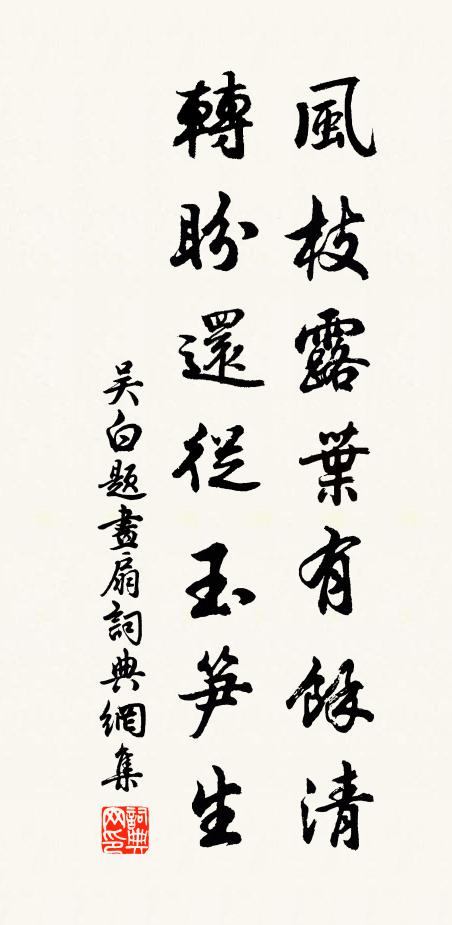 風枝露葉有餘清
轉盼還從玉笋生
吴白題畫扇詞典網集
詞典网印